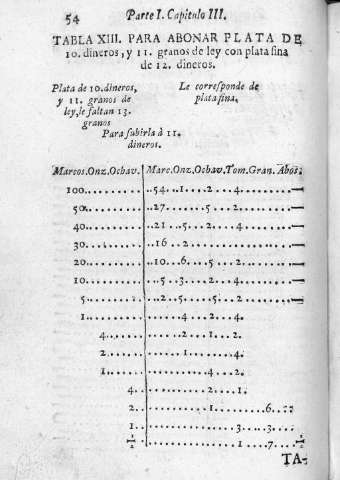 54 Parte I. Capitulo III.
TABLA XIII. PARA ABONAR PLATA DE
10. dineros, y 11. granos de ley con plata fina
de 12. dineros.
Plata de 10. dineros,
y 11. granos de
ley, le faltan 13.
granos
Le corresponde de
plata fina.
Para subirla à 11.
dineros.
Marcos. Onz. Ochav. Marc. Onz. Ochav. Tom. Gran. Abos.
100...........54..1...2....4........
50...........27.......5....2........
40...........21...5...2....4........
30...........16..2............
20...........10...6...5....2........
10............5...3...2....4........
5............2...5...5....2........
1................4...2....4.
4............2...1....2.
2............1........4.
1................4....2.
4............2....1.
2............1............6...
1................3.....3...
1/2................1.....7...1/2
TA-